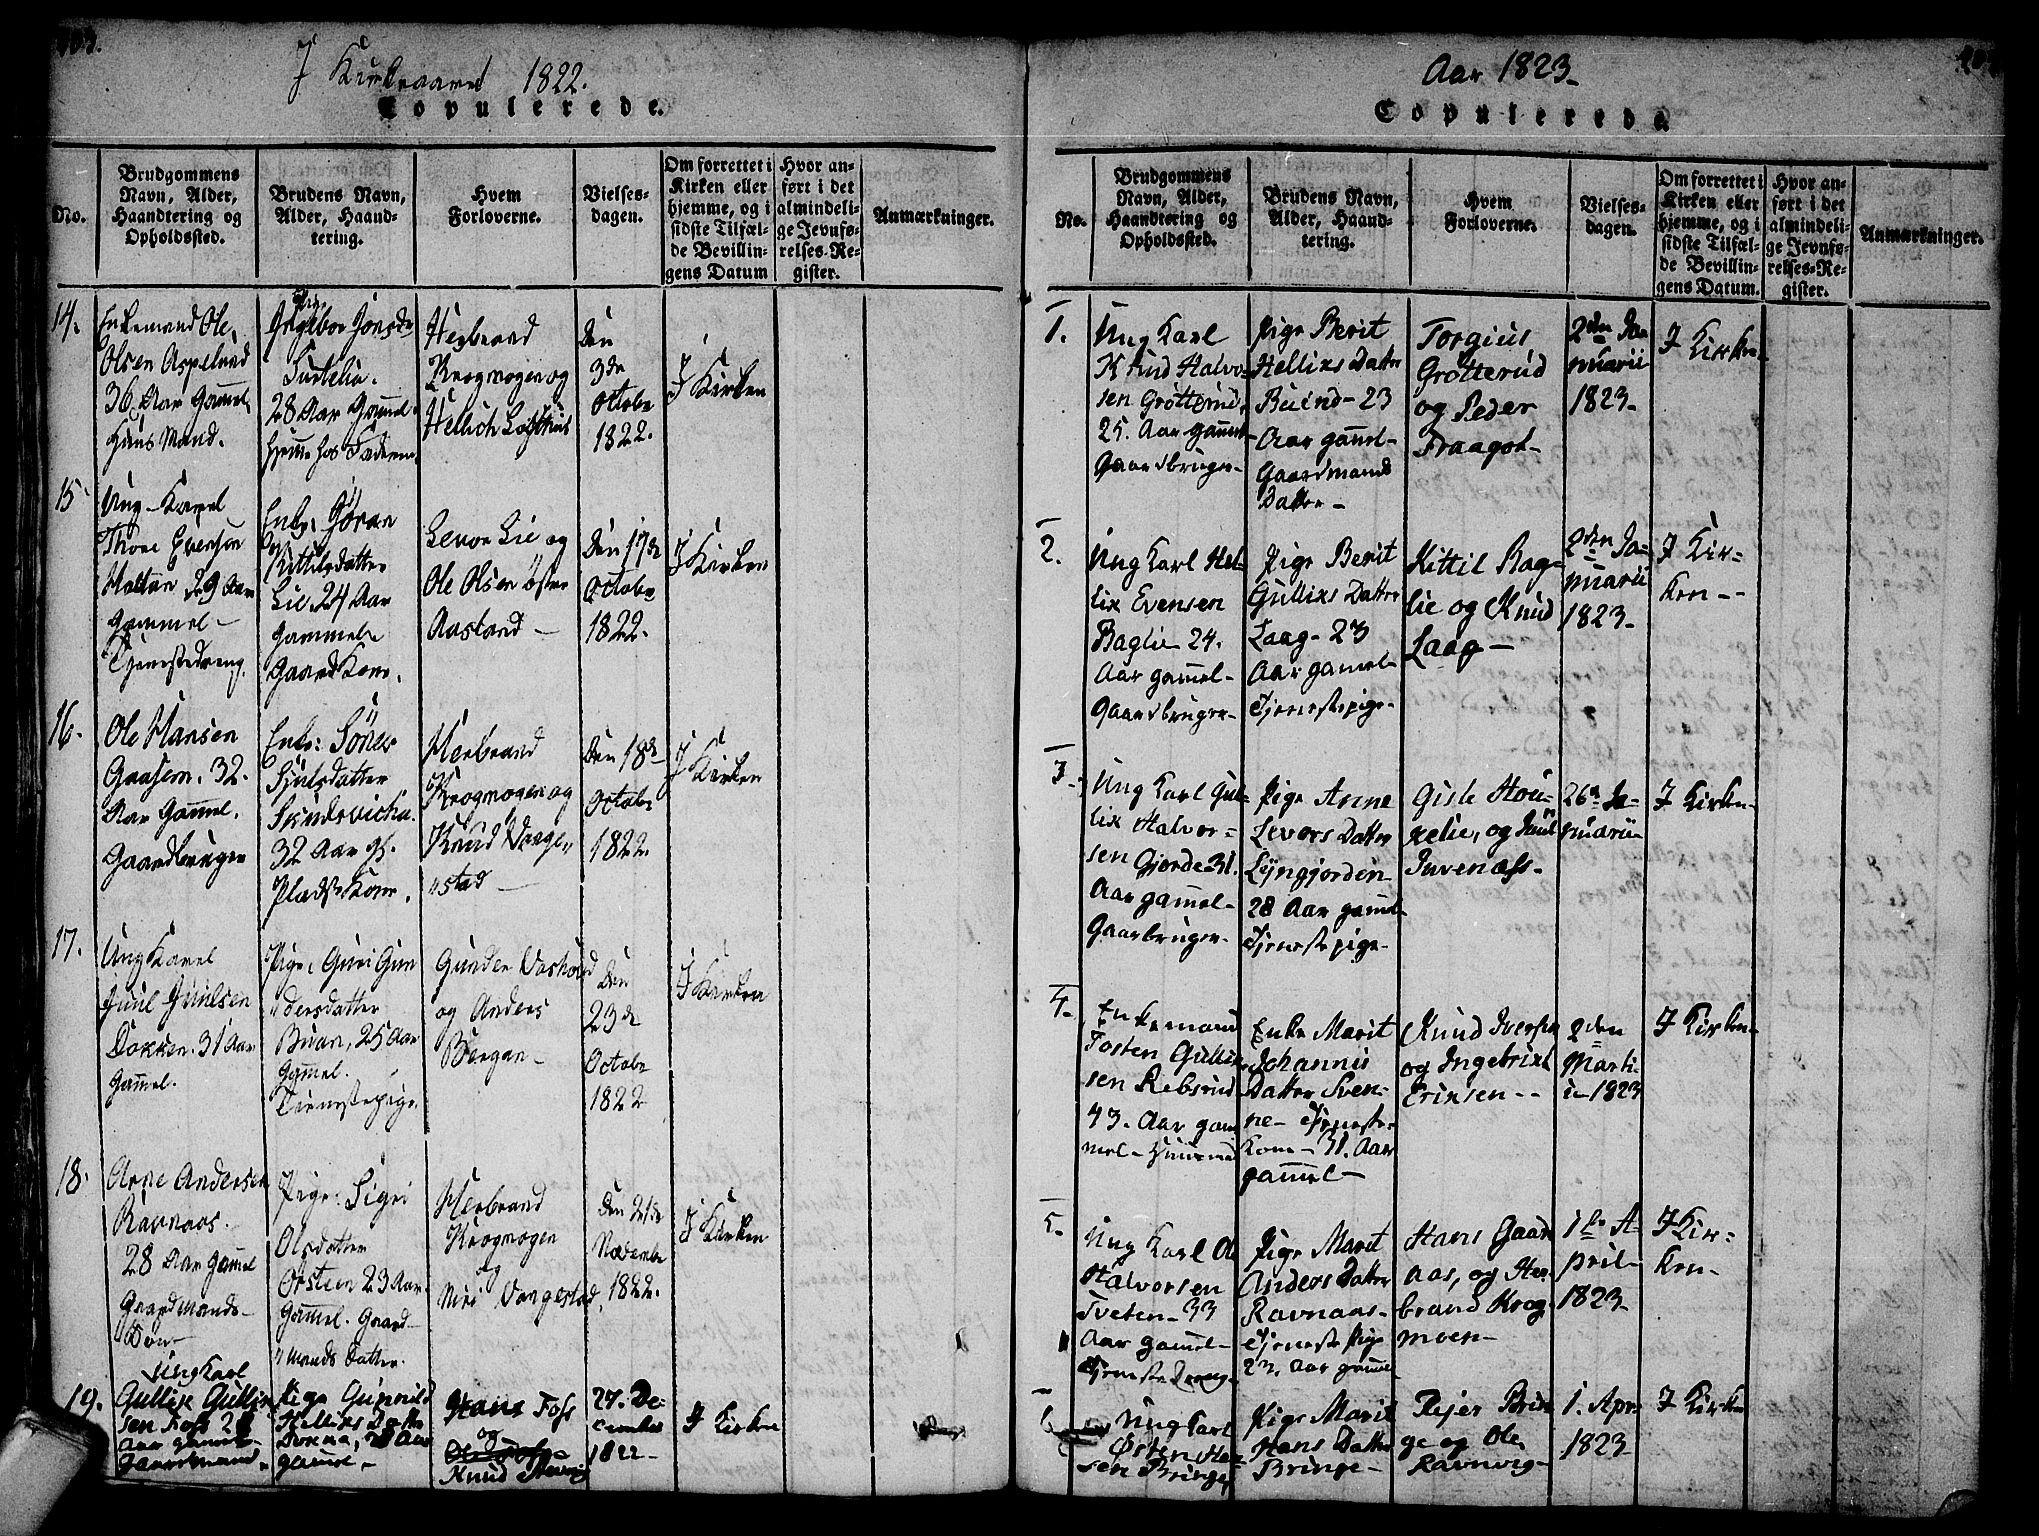 I Kirkeaaret 1822.
Copulerede.
No.
Brudgommens
Navn, Alder,
Haandtering og
Opholdssted.
Brudens Navn,
Alder, Haand-
tering.
Hvem
Forloverne.
Vielses-
dagen.
Om forrettet i
Kirken eller
hjemme, og i
sidste Tilfæl-
de Bevillin-
gens Datum
Hvor an-
ført i det
almindeli-
ge Jevnfø-
relses-Re-
gister.
Anmærkninger.
14.
Enkemand Ole
Olsen Aspelund
36 Aar Gammel
Huus Mand.
Pige
Ingebor Jonsd
28 Aar Gammel
hjemme hos Faderen
Herbrand
Krogmogen og
Hellich
Den
3de
Octobr
1822.
I Kirken
15
Ung-Karel
Thore Evensen
29 Aar
Gammel-
Tjenestedreng.
Enke: Göran
Kittilsdatter
Lie 24 Aar
Gammel
Gaard Kone.
Levor Lie og
Ole Olsen Öster
Aasland-
Den 17de
Octobr
1822.
I Kirken
16.
Ole Hansen
32.
Aar Gammel.
Gaardbruger
Enke:
32 Aar gl.
Plads Kone.
Herbrand
Krogmogen og
Knud Vange-
"stad-
Den 18de
Octobr
1822.
I Kirken
17.
Ung Karel
Juul Juulsen
Dokken. 31 Aar
Gammel.
Pige: Guri Gun
"dersdatter
Bruan, 25 Aar
Gammel.
Tienestepige.
Gunder
og Anders
Bergan-
Den
23de
Octobr
1822
I Kirken
18.
Arne Andersen
Ravnaas.
28 Aar Gammel
Gaardmands-
Søn-
Pige: Sigri
Olsdatter
Orsteen 23 Aar
Gammel. Gaard-
"mands Datter.
Herbrand
Krogmogen
og
Vangestad,
Den 21de
Novembr
1822.
I Kirken
19.
Ung Karl
Gullik Gullik
sen Foss 28
Aar gammel-
Gaardmand.
Pige Gunnild
Helliks Datter
28 Aar
gammel-
Hans Foss
og
Knud
27. De-
cember
1822-
I Kirken
Aar 1823-
Copulerede.
No.
Brudgommens
Navn, Alder,
Haandtering og
Opholdssted.
Brudens Navn,
Alder, Haand-
tering.
Hvem
Forloverne.
Vielses-
dagen.
Om forrettet i
Kirken eller
hjemme, og i
sidste Tilfæl-
de Bevillin-
gens Datum.
Hvor an-
ført i det
almindeli-
ge Jevnfø-
relses-Re-
gister.
Anmærkninger.
1.
Ung Karl
Knud Halvo-
sen Grötterud,
25. Aar gammel-
Gaardbruger-
Pige Berit
Helliks Datter
Buind- 23
Aar gammel-
Gaardmands
Datter-
Torgius
Grötterud
og Peder
Praagot-
2den Ja-
nuarii
1823-
I Kirken
2.
Ung Karl Hel-
lik Evensen
Baglie- 24.
Aar gammel-
Gaardbruger-
Pige Berit
Gulliks Datter
Laag- 23
Aar gamel-
Tjenestepige-
Kittil Bag-
lie og Knud
Laag-
2den Ja-
nuarii
1823-
I Kir-
ken--
3.
Ung Karl Gul-
lik Halvor-
sen Gjorde 31.
Aar gammel-
Gaarbruger-
Pige Anne
Levors Datter
Lyngjorden
28 Aar gammel-
Tjenestepige-
Gisle Hou-
kelie, og Juul
Juvenæss-
26n Ja-
nuarii-
I Kirken-
4.
Enkemand
Tosten Gullik
sen Rebsrud
43. Aar gam
mel- Huusmand
Enke Marit
Johannis
Datter Sven-
ne- Tjeneste-
kone- 31. Aar
gammel-
Knud Iversen
og Ingebrikt
Erinsen--
2den
Marti-
i- 1823
I Kirken-
5.
Ung Karl
Halvorsen
Tveten- 33
Aar gammel-
Tjeneste Dreng-
Pige Marit
Anders Datter
Ravnaas-
Tjeneste Pige
Aar gammel
Hans Gaar
aas, og Her-
brand Krog-
moen-
1ste A-
pril-
1823-
I Kir-
ken-
Ung Karl
Østen Han-
sen Bringe,
Pige Marit
Hans Datter
Bringe-
Pejer Brin
ge og Ole
Ravnvig-
1. Apr:
1823
I Kirken